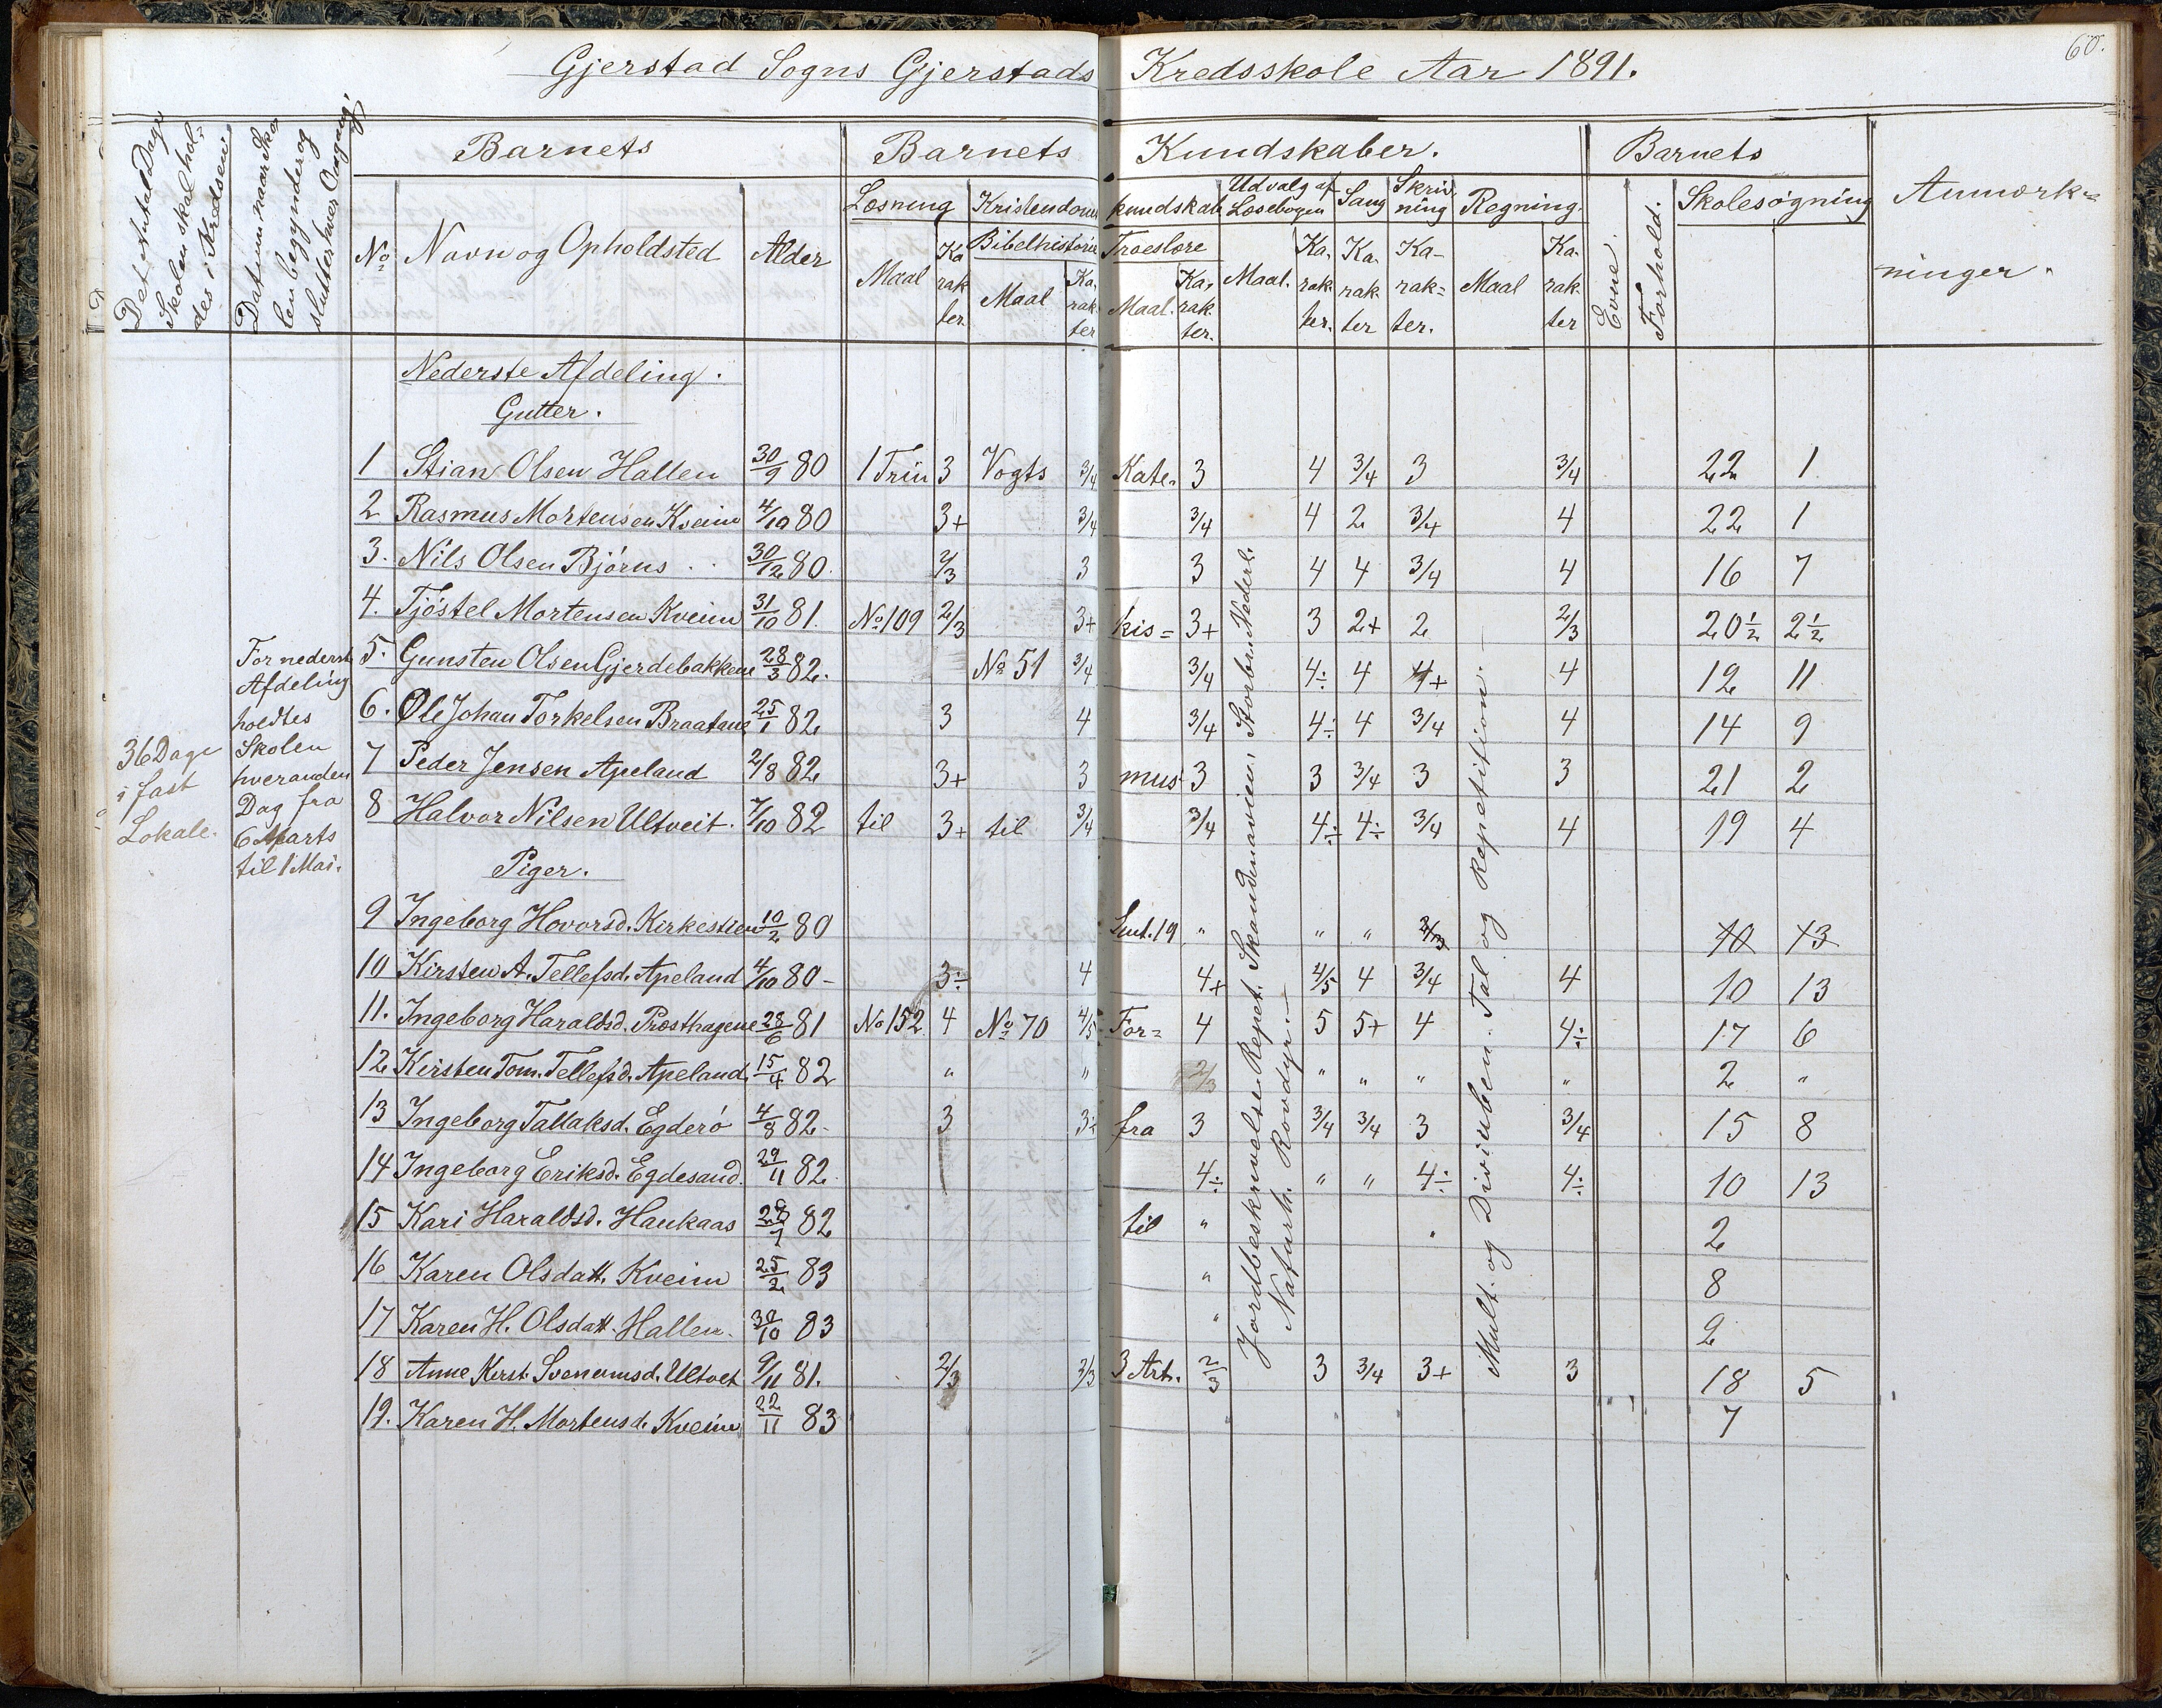 60.
Gjerstad Sogns Gjerstads Kredsskole Aar 1891.
Det Antal Dage
Skolen skal hol-
des i Kredsen
Datum naar Sko
len begynder og
slutter hver Omgang.
Barnets
Barnets Kundskaber.
Barnets
Anmærk=
ninger.
No Navn og Opholdsted Alder
Læsning Kristendoms kundskab Udvalg af Læsebogen Sang Skrivning Regning.
Bibelhistorie Troeslære
Maal Karakter Maal Karakter Maal. Karakter. Maal. Karakter. Karakter Karakter. Maal Karakter
Evne. Forhold. Skolesøgning
Nederste Afdeling.
Gutter.
1 Stian Olsen Hallen 30/9 80 1 Trin 3 Vogts 3/4 Kate- 3 4 3/4 3 3/4 22 1
2 Rasmus Mortensen Kveim 4/10 80 3+ 3/4 3/4 4 2 3/4 4 22 1
3. Nils Olsen Bjørus 30/12 80. 2/3 3 3 4 4 3/4 4 16 7
4. Tjøstel Mortensen Kveim 31/10 81. No 109 2/3 3+ kis= 3+ 3 2+ 2 2/3 20 1/2 2 1/2
5. Gunsten Olsen Gjerdebakkene 28/3 82. No 51 3/4 3/4 4÷ 4 4+ 4 12 11
6. Ole Johan Torkelsen Braatane 25/1 82 3 4 3/4 4÷ 4 3/4 4 14 9
7 Peder Jensen Apeland 2/8 82 3+ 3 mus 3 3 3/4 3 3 21 2
8 Halvor Nilsen Ultveit. 7/10 82 til 3+ til 3/4 3/4 4÷ 4÷ 3/4 4 19 4
For nederste
Afdeling
holdtes
Skolen
hveranden
Dag fra
6 Marts
til 1 Mai.
36 Dage
i fast
Lokale.
Piger.
9 Ingeborg Hovorsd. Kirkestien 10/2 80 Lut. 19 " " " 2/3 10 13
10 Kirsten A. Tellefsd. Apeland 4/10 80 - 3÷ 4 4+ 4/5 4 3/4 4 10 13
11. Ingeborg Haraldsd. Præsthagene 28/6 81 No 152 4 No 70 4/5 For= 4 5 5+ 4 4÷ 17 6
12 Kirsten Tom. Tellefsd. Apeland 15/4 82 " " 2/3 " " " " 2 "
13 Ingeborg Tallaksd. Egderø 4/8 82- 3 3÷ fra 3 3/4 3/4 3 3/4 15 8
14 Ingeborg Eriksd. Egdesand. 29/11 82 4÷ " " 4÷ 4÷ 10 13
15 Kari Haraldsd. Haukaas 28/7 82 til " 2
16 Karen Olsdatt. Kveim 25/2 83 " 8
17 Karen H. Olsdatt. Hallen. 30/10 83 " 2
18 Anne Kirst. Svenumsd. Ultvet 9/11 81. 2/3 2/3 3 Art. 2/3 3 3/4 3+ 3 18 5
19. Karen H. Mortensd. Kveim 22/11 83 7
Jordbeskrivelse Repet. Skandinavien, Storbr. Nederl.
Naturh. Rovdyr.—
Mult. og Divi uben. Tal og Repetition.—